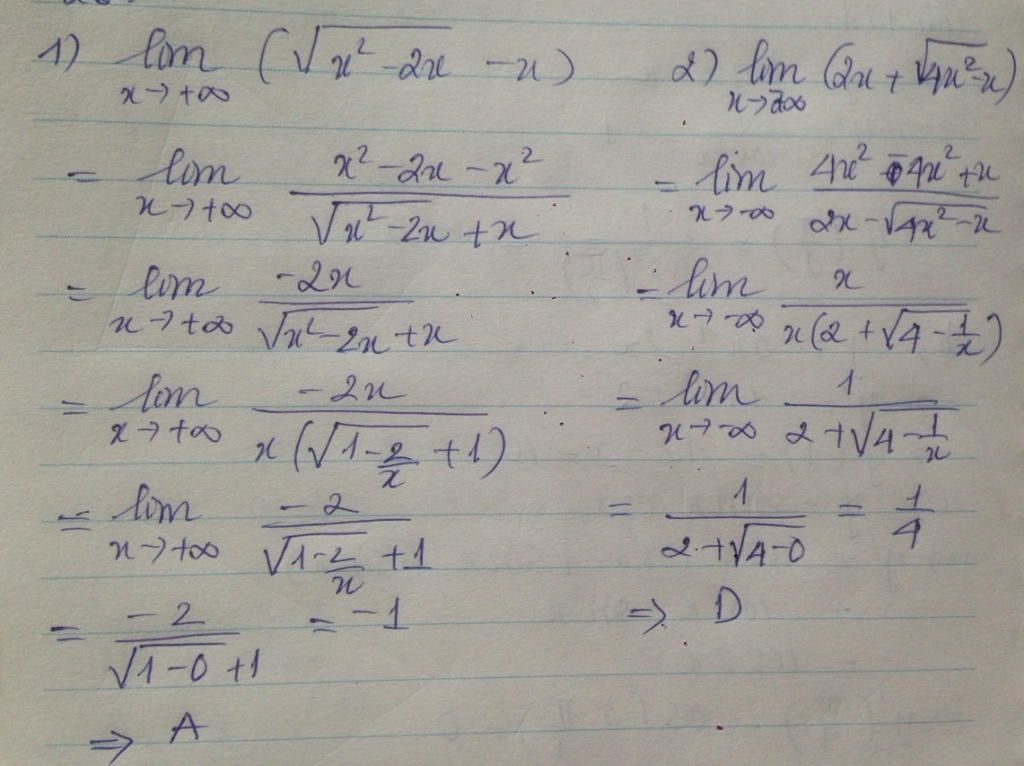 1) lim x→+∞ (√(x² - 2x) - x)
= lim x→+∞ (x² - 2x - x²)/(√(x² - 2x) + x)
= lim x→+∞ (-2x)/(√(x² - 2x) + x)
= lim x→+∞ (-2x)/(x(√(1 - 2/x) + 1))
= lim x→+∞ (-2)/(√(1 - 2/x) + 1)
= (-2)/(√(1 - 0) + 1) = -1
⇒ A
2) lim x→-∞ (2x + √(4x² - x))
= lim x→-∞ (4x² - 4x² + x)/(2x - √(4x² - x))
= lim x→-∞ x/(x(2 + √(4 - 1/x)))
= lim x→-∞ 1/(2 + √(4 - 1/x))
= 1/(2 + √(4 - 0)) = 1/4
⇒ D